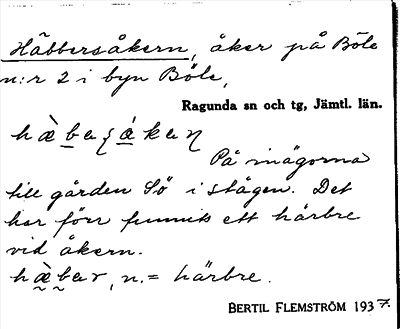 Häbbersåkern, åker på Böle
n:r 2 i byn Böle,
Ragunda sn och tg, Jämtl. län.
På inägorna
till gården Sö i stågen. Det
har förr funnits ett härbre
vid åkern.
n. = härbre.
BERTIL FLEMSTRÖM 1937.